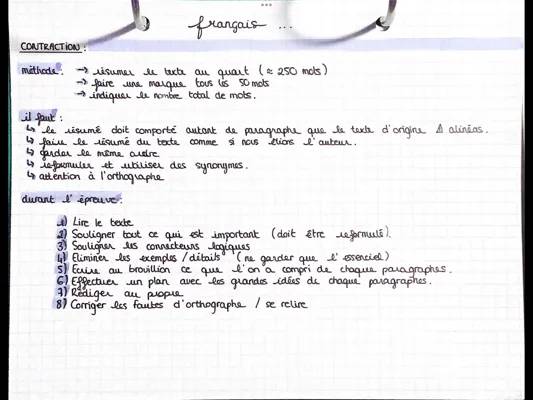 français ...
CONTRACTION :
méthode : → résumer le texte au quart (≈ 250 mots)
→ faire une marque tous les 50 mots
→ indiquer le nombre total de mots.
il faut :
↳ le résumé doit comporté autant de paragraphe que le texte d'origine ⚠ alinéas.
↳ faire le résumé du texte comme si nous étions l'auteur.
↳ garder le même ordre
↳ reformuler et utiliser des synonymes.
↳ attention à l'orthographe
durant l'épreuve :
1) Lire le texte
2) Souligner tout ce qui est important (doit être reformulé).
3) Souligner les connecteurs logiques
4) Eliminer les exemples / détails (ne garder que l'essenciel)
5) Ecrire au brouillon ce que l'on a compri de chaque paragraphes.
6) Effectuer un plan avec les grandes idées de chaque paragraphes.
7) Rédiger au propre
8) Corriger les fautes d'orthographe / se relire